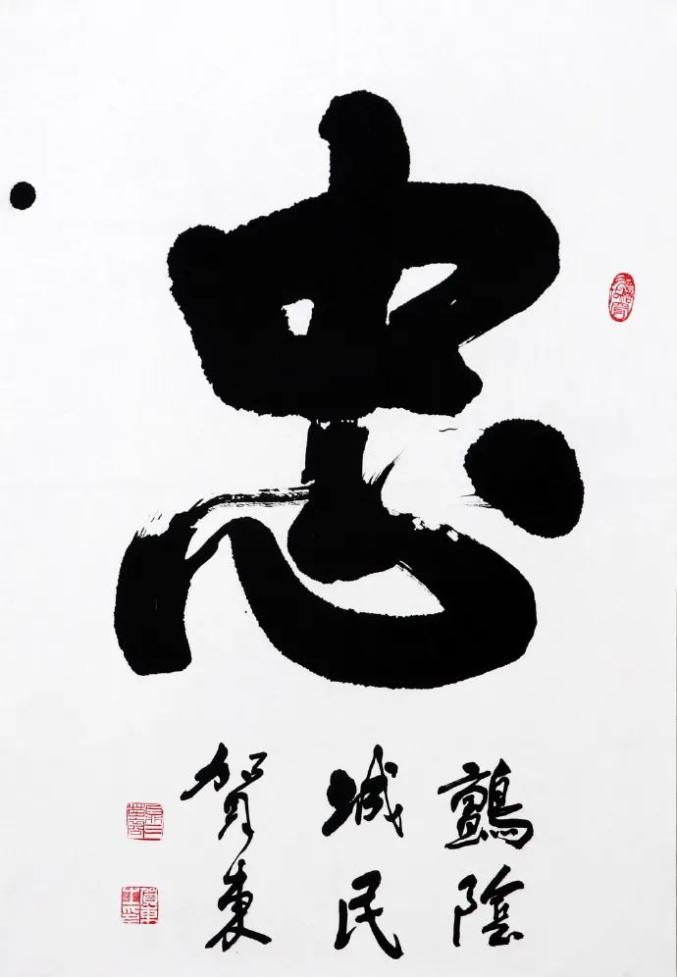 忠
鸇陰
城民
賀東